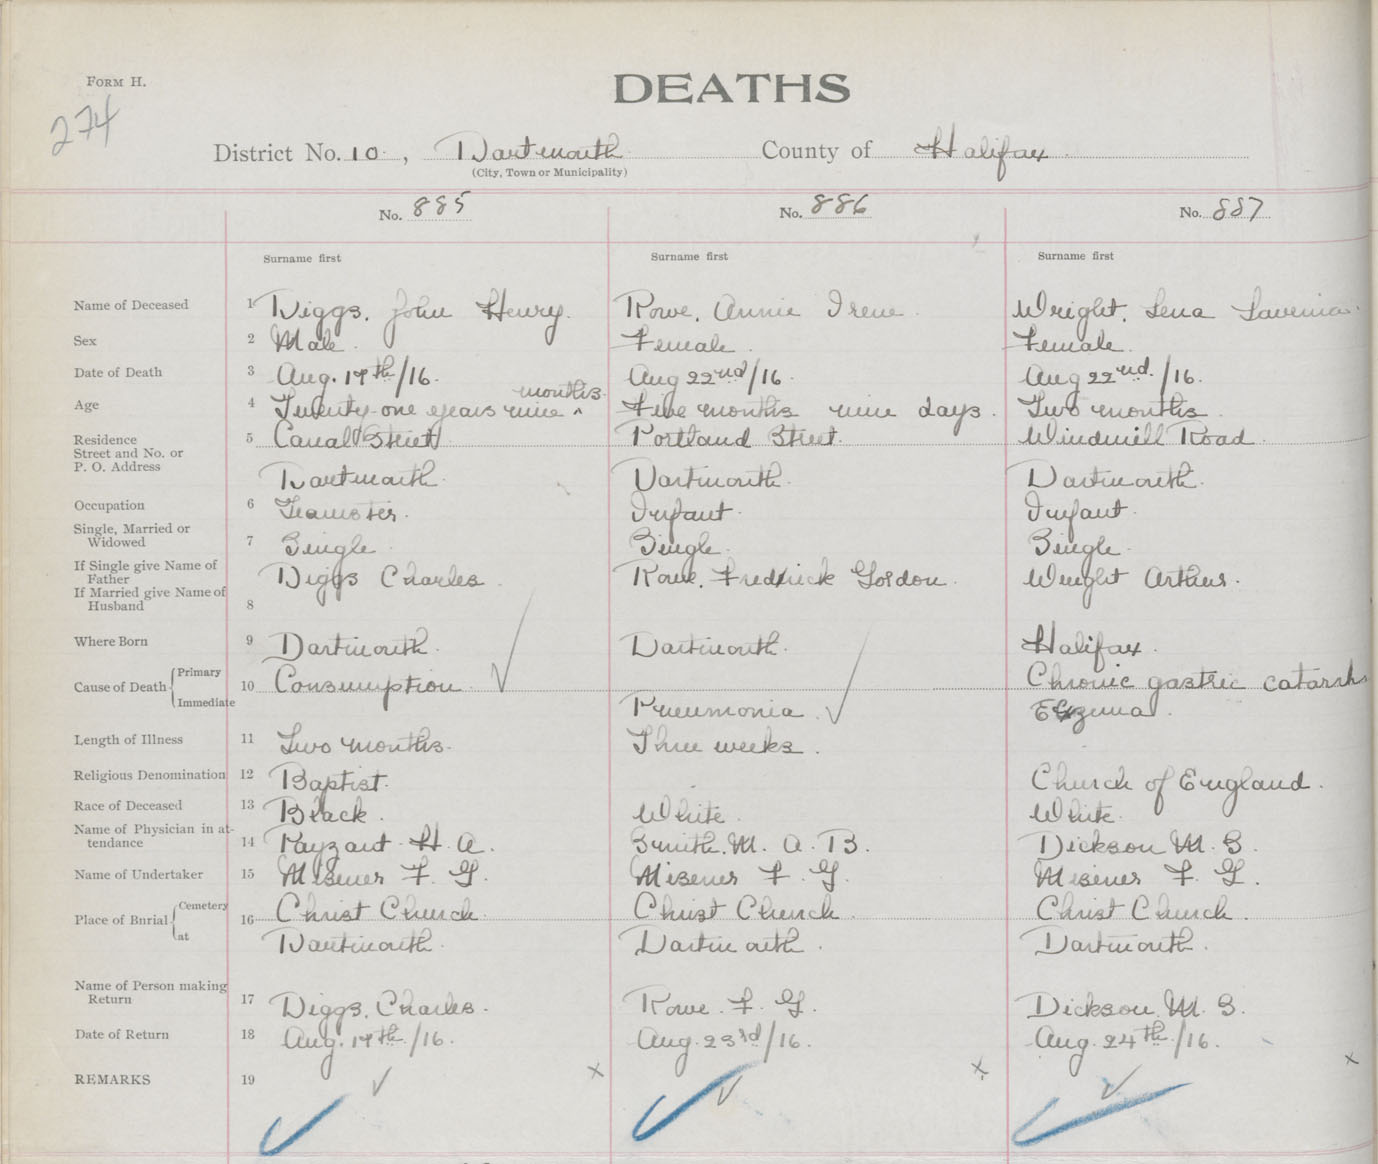 FORM H.
DEATHS
274
District No. 10, Dartmouth County of Halifax
(City, Town or Municipality)
No. 885 No. 886 No. 887
Surname first Surname first Surname first
Name of Deceased 1 Diggs, John Henry. Rowe, Annie Irene. Wright, Lena Lavenia.
Sex 2 Male. Female. Female.
Date of Death 3 Aug. 17th/16. Aug 22nd/16. Aug 22nd./16.
months.
Age 4 Twenty-one years nine ^ Five months nine days. Two months.
Residence 5 Canal Street Portland Street. Windmill Road.
Street and No. or
P. O. Address Dartmouth. Dartmouth. Dartmouth.
Occupation 6 Teamster. Infant. Infant.
Single, Married or
Widowed 7 Single. Single. Single.
If Single give Name of
Father Diggs Charles. Rowe, Fredrick Gordon. Wright Arthur.
If Married give Name of
Husband 8
Where Born 9 Dartmouth. Dartmouth. Halifax.
Cause of Death Primary 10 Consumption. Chronic gastric catarrh
Immediate Pneumonia. Eczema.
Length of Illness 11 Two months. Three weeks.
Religious Denomination 12 Baptist. Church of England.
Race of Deceased 13 Black. White. White.
Name of Physician in at-
tendance 14 Payzant H. A. Smith, M. A. B. Dickson M. S.
Name of Undertaker 15 Misener F. G. Misener F. G. Misener F. G.
Place of Burial Cemetery 16 Christ Church. Christ Church. Christ Church.
at Dartmouth. Dartmouth. Dartmouth.
Name of Person making
Return 17 Diggs, Charles. Rowe. F. G. Dickson, M. S.
Date of Return 18 Aug. 17th./16. Aug. 23rd/16. Aug. 24th./16.
REMARKS 19 x x x